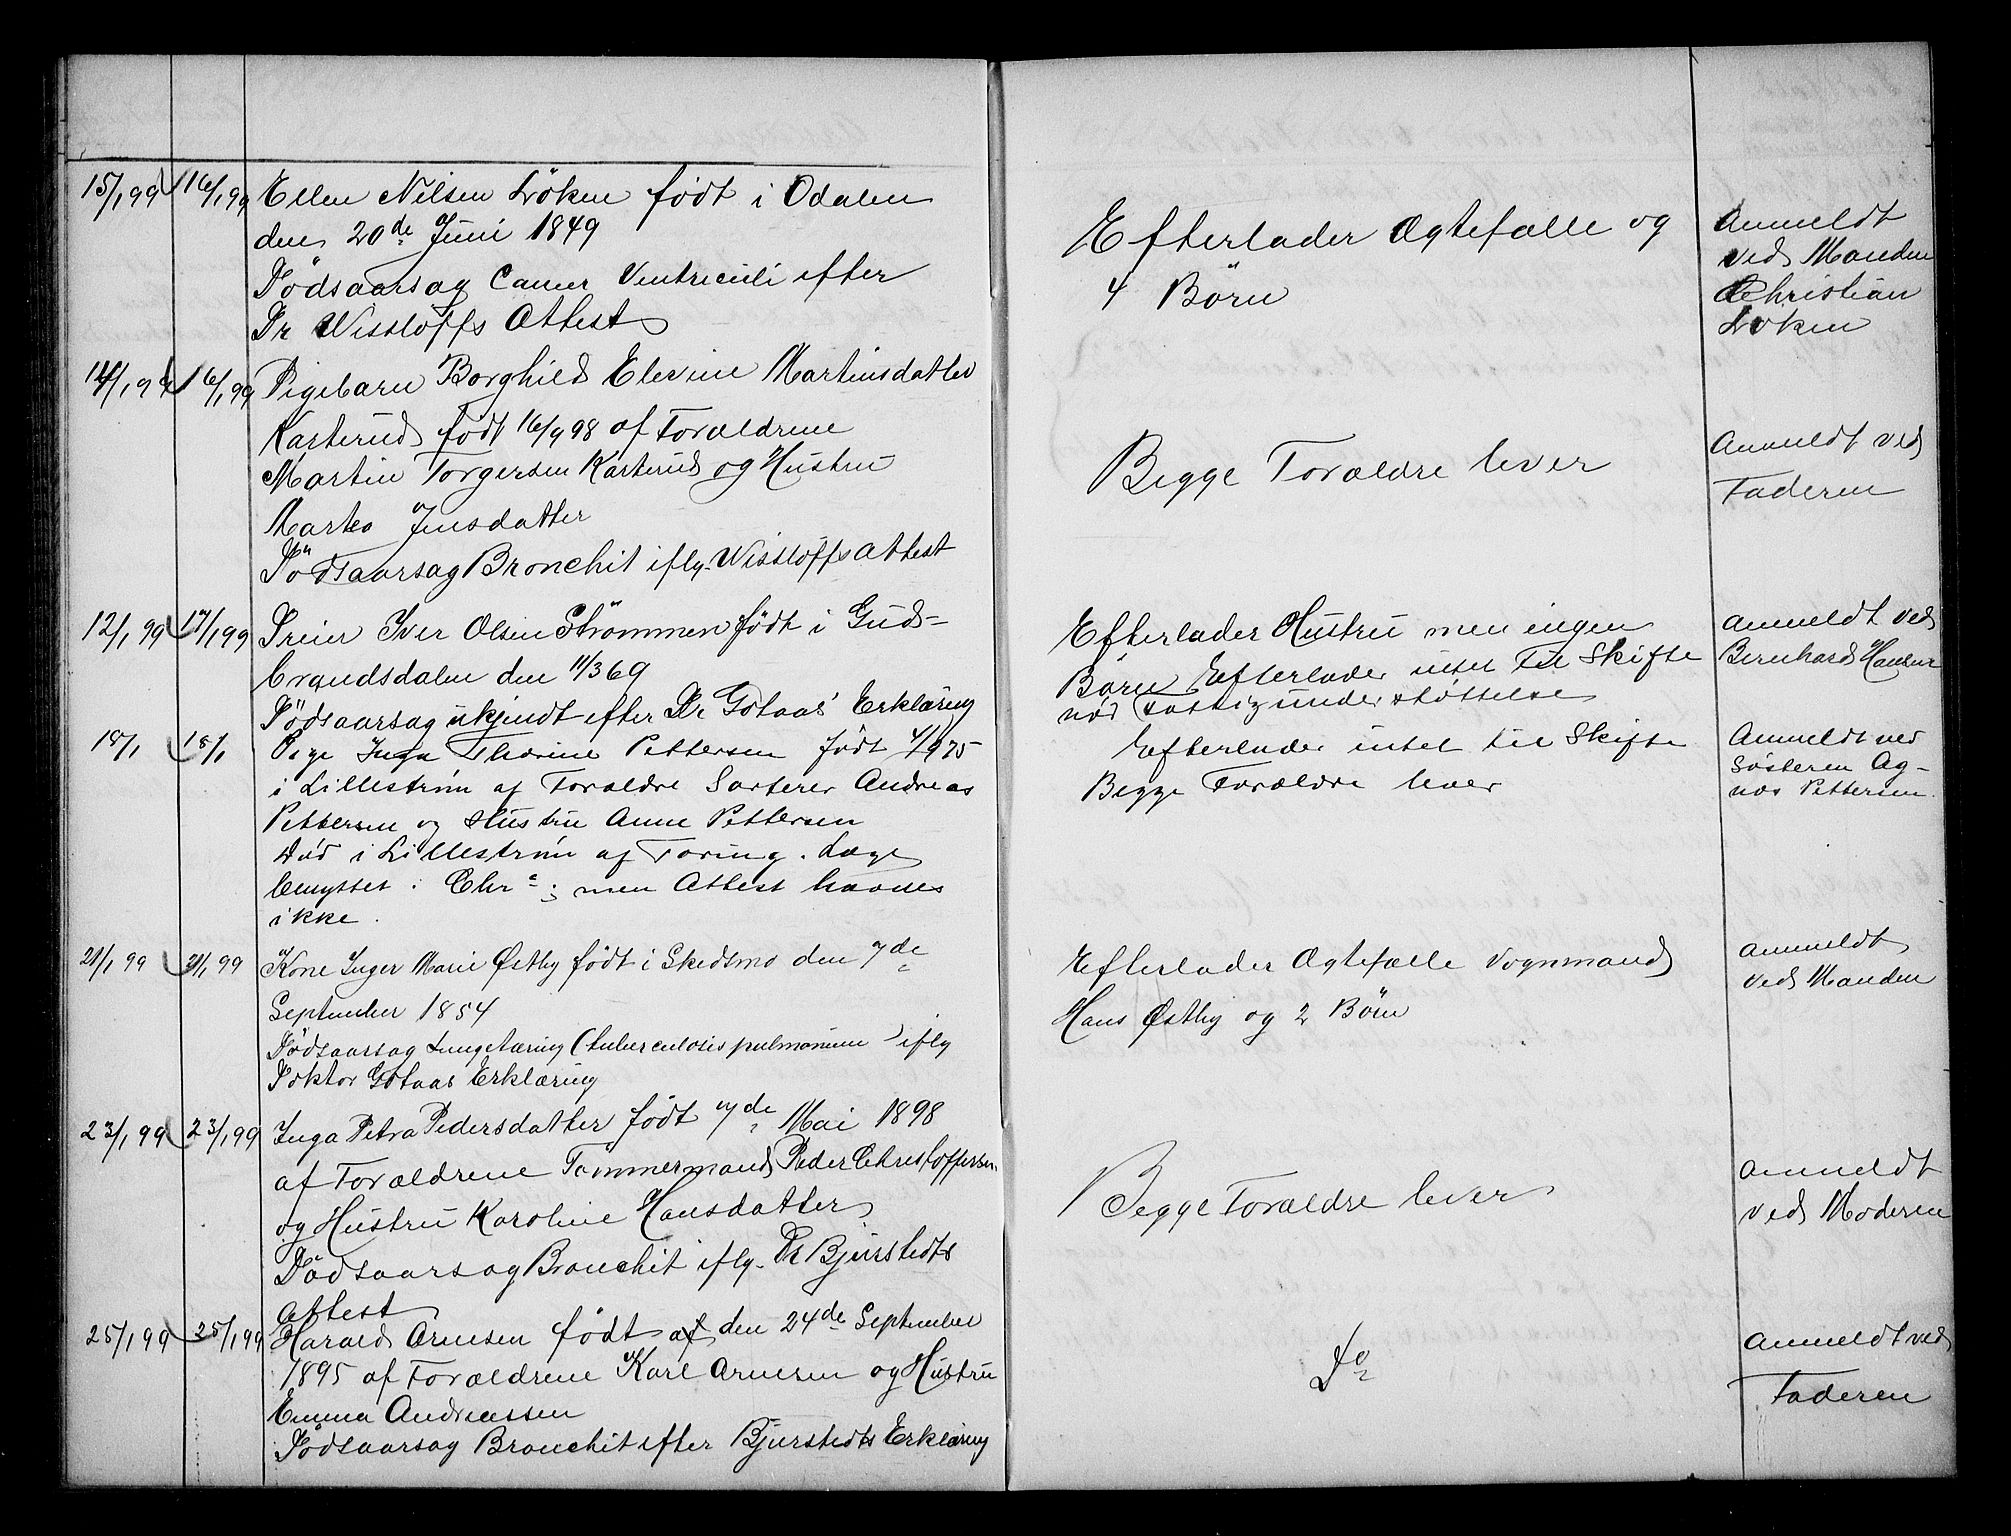 15/1 99 16/1 99 Ellen Nilsen Löken født i Odalen
den 20de Juni 1849
Dödsaarsag Cancer Ventriculi efter
Dr Wisslöffs Attest
Efterlader Ægtefælle og
4 Börn
Anmeldt
ved Manden
Christian
Løken
14/1 99 16/1 99 Pigebarn Borghild Elevine Martinsdatter
Karterud født 16/9 98 af Forældrene
Martin Torgersen Karterud og Hustru
Marte Jensdatter
Dödsaarsag Bronchit iflg. Wisslöffs Attest
Begge Forældre lever
Anmeldt ved
Faderen
12/1 99 17/1 99 Dreier Iver Olsen Strömmen født i Guds-
brandsdalen den 11/3 69
Dödsaarsag ukjendt efter Dr Gotaas' Erklæring
Efterlader Hustru men ingen
Börn Efterlader intet til Skifte
nød Fattigunderstøttelse
Anmeldt ved
Bernhard Hansen
18/1 18/1 Pige Inga Thorine Pettersen født 4/9 75
i Lillestrøm af Forældre Sorterer Andreas
Pettersen og Hustru Anne Pettersen
Død i Lillestrøm af Tæring. Læge
benyttet i Chr.a; men Attest havdes
ikke.
Efterlader intet til Skifte
Begge Forældre lever
Anmeldt ved
Søsteren Ag-
nes Pettersen.
21/1 99 21/1 99 Kone Inger Marie Østby født i Skedsmo den 7de
September 1854
Dödsaarsag Lungetæring (tuberculosis pulmonum) iflg
Doktor Gotaas Erklæring
Efterlader Ægtefælle Vognmand
Hans Østby og 2 Börn
Anmeldt
ved Manden
23/1 99 23/1 99 Inga Petra Pedersdatter født 7de Mai 1898
af Forældrene Tømmermand Peder Christoffersen
og Hustru Karoline Hansdatter
Dödsaarsag Bronchit iflg. Dr Bjurstedts
Attest
Begge Forældre lever
Anmeldt
ved Moderen
25/1 99 25/1 99 Harald Arnesen født af den 24de September
1895 af Forældrene Karl Arnesen og Hustru
Emma Andreassen
Dödsaarsag Bronchit efter Bjurstedts Erklæring
Do
Anmeldt ved
Faderen